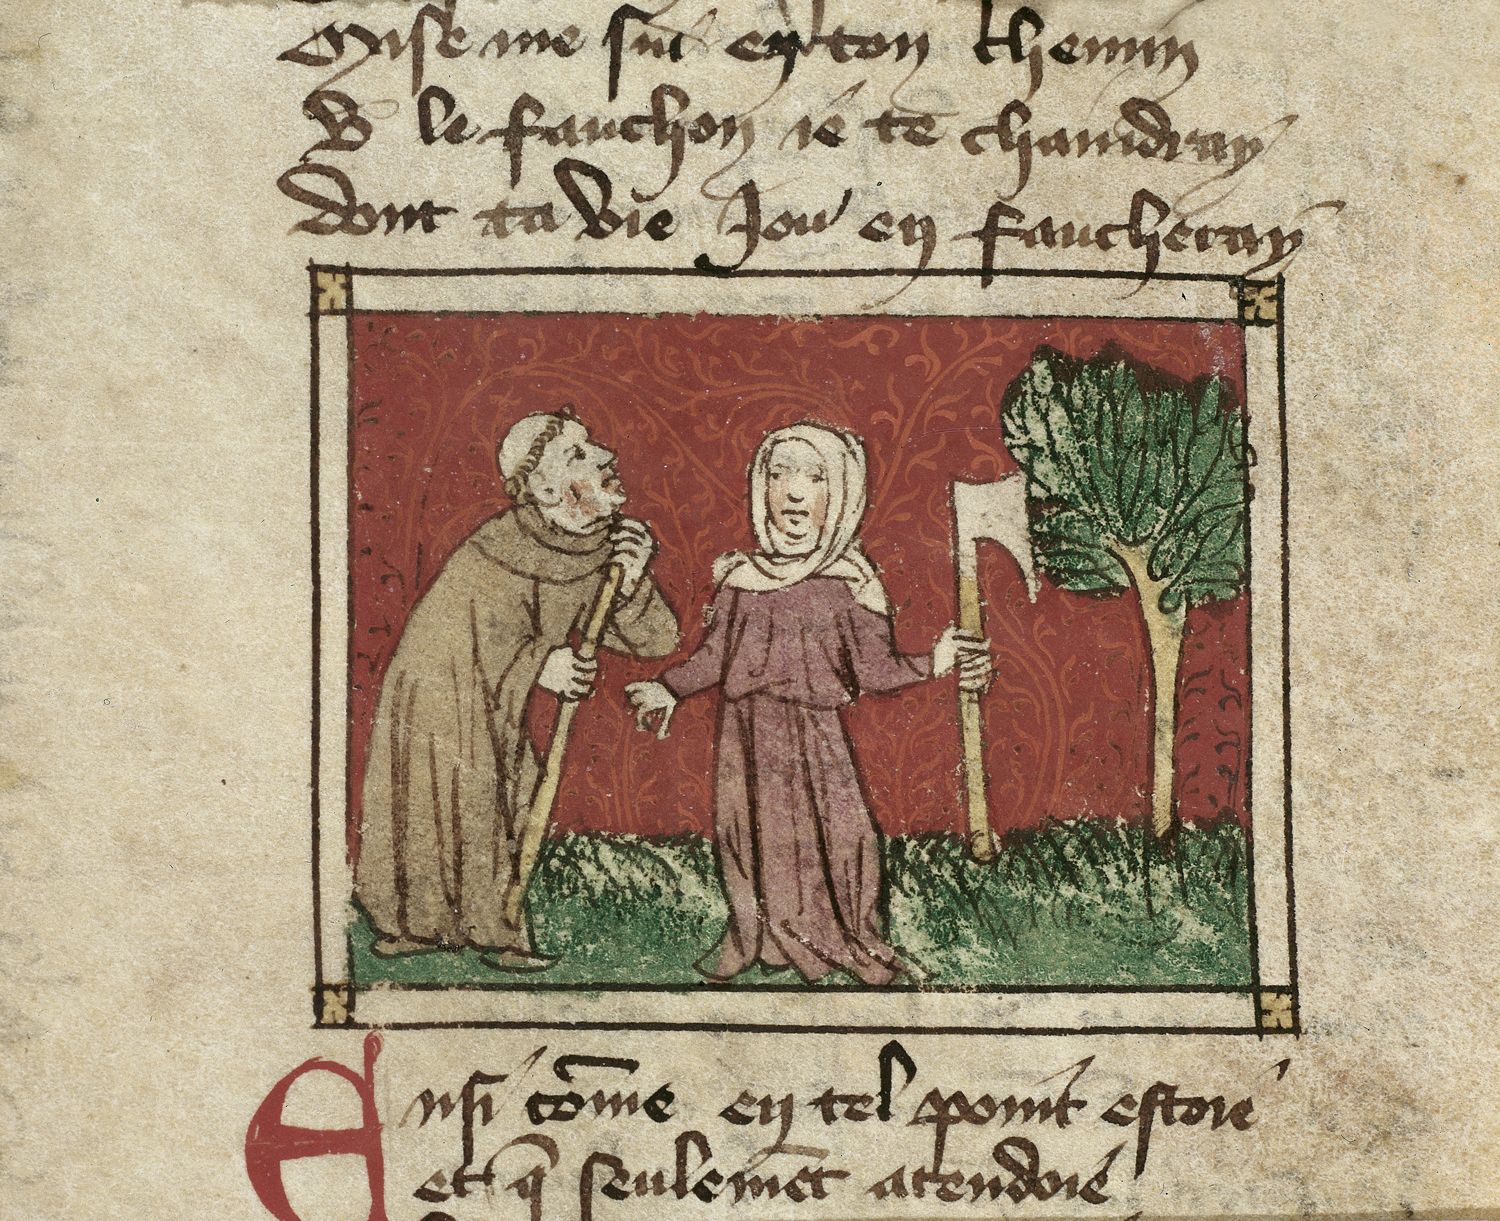 Mise me sui en ton chemin
Et le fauchon ie te chaindray
dont ta vie Jou en faucheray
Ensi cōme en tel point estoie
et q̄ seulemēt atendoie